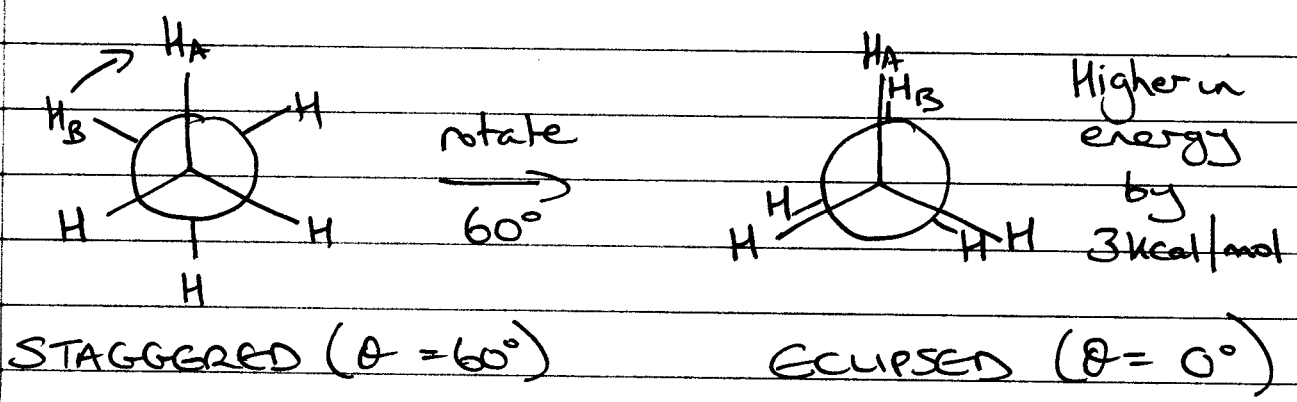 HA
HB H
H H
H
rotate
60°
HA
HB
H
H H H
Higher in
energy
by
3 kcal/mol
STAGGERED (θ = 60°)
ECLIPSED (θ = 0°)